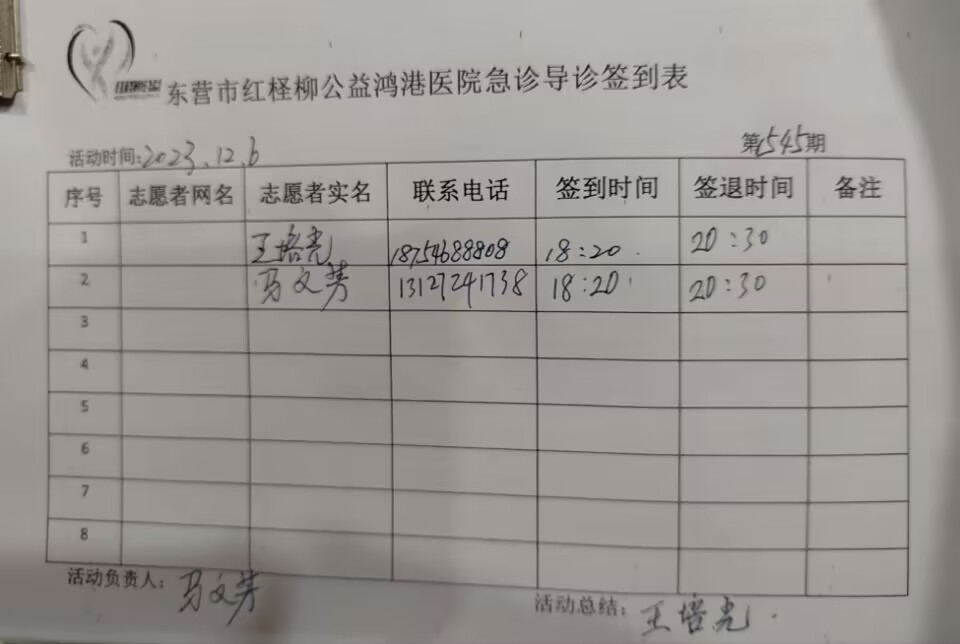 东营市红柽柳公益鸿港医院急诊导诊签到表
活动时间:2023.12.6 第1545期
序号 志愿者网名 志愿者实名 联系电话 签到时间 签退时间 备注
1 王培光 18754688808 18:20 20:30
2 马文芳 13127241738 18:20 20:30
3
4
5
6
7
8
活动负责人:马文芳 活动总结:王培光.